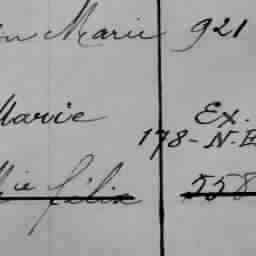 on Marie 921
Marie Ex.
178-N.E
Vie Félix 558